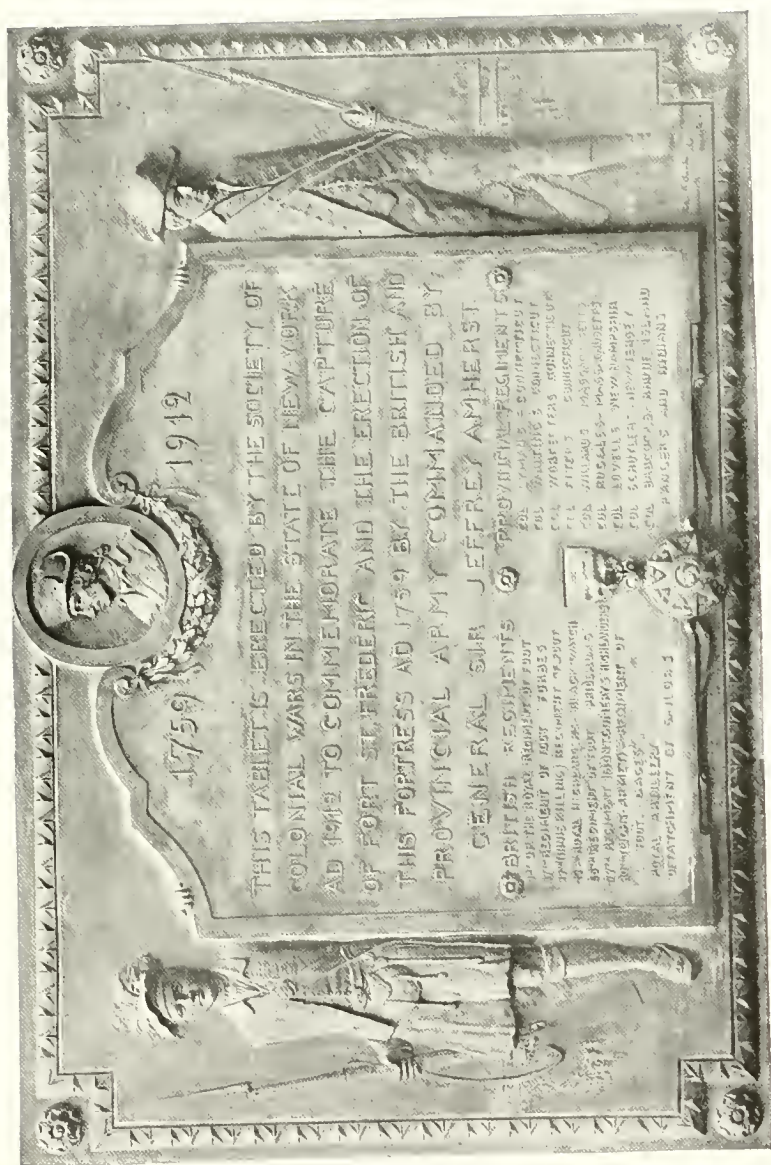 1759 1912
THIS TABLET IS ERECTED BY THE SOCIETY OF
COLONIAL WARS IN THE STATE OF NEW YORK
AD 1912 TO COMMEMORATE THE CAPTURE
OF FORT ST. FREDERIC AND THE ERECTION OF
THIS FORTRESS AD 1759 BY THE BRITISH AND
PROVINCIAL ARMY COMMANDED BY
GENERAL SIR JEFFREY AMHERST
BRITISH REGIMENTS
OR THE ROYAL REGIMENT OF FOOT
REGIMENT OF FOOT FORBES
INNISKILLING REGIMENT OF FOOT
ROYAL HIGHLANDERS BLACK WATCH
REGIMENT OF FOOT
REGIMENT MONTGOMERY'S HIGHLANDERS
REGIMENT OF
FOOT GAGES
ROYAL ARTILLERY
DETATCHMENT OF
PROVINCIAL REGIMENTS
COL LYMANS CONNECTICUT
COL CONNECTICUT
COL WORSTERS CONNECTICUT
COL FITCHS CONNECTICUT
COL WILLARDS MASSACHUSETTS
COL RUGGLES MASSACHUSETTS
COL LOVELLS NEW HAMPSHIRE
COL SCHUYLER NEW JERSEY
COL BABCOCKS RHODE ISLAND
RANGERS AND INDIANS